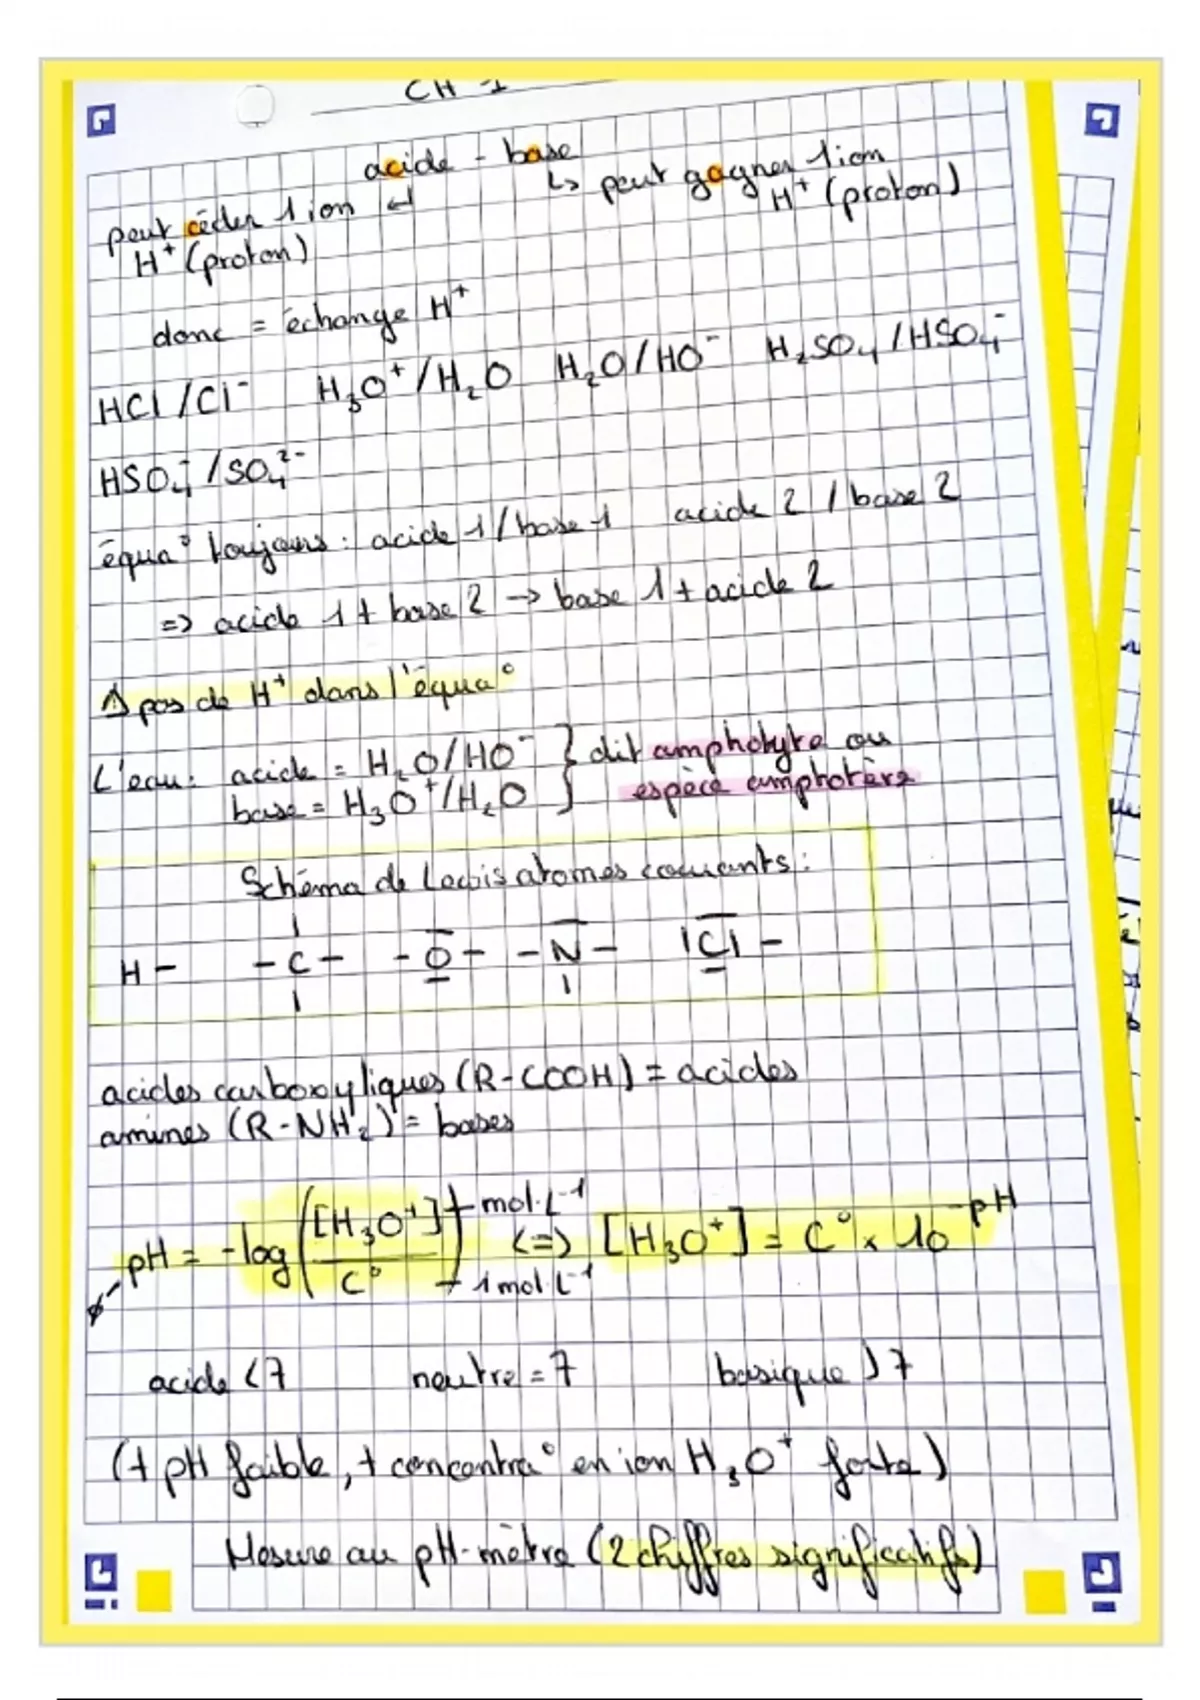 CH 1
acide - base
peut céder 1 ion ↵
H⁺ (proton)
↳ peut gagner 1 ion
H⁺ (proton)
donc = échange H⁺
HCl / Cl⁻ H₃O⁺/H₂O H₂O/HO⁻ H₂SO₄ / HSO₄⁻
HSO₄⁻ / SO₄²⁻
équa° toujours : acide 1 / base 1 acide 2 / base 2
=> acide 1 + base 2 → base 1 + acide 2
⚠ pas de H⁺ dans l'équa°
L'eau : acide = H₂O/HO⁻ } dit ampholyte ou
base = H₃O⁺/H₂O } espèce amphotère
Schéma de Lewis atomes courants :
H - - C - - O - - N - |Cl -
acides carboxyliques (R-COOH) = acides
amines (R-NH₂) = bases
pH = -log([H₃O⁺]/C°) → mol·L⁻¹ → 1 mol·L⁻¹ <=> [H₃O⁺] = C° × 10⁻ᵖᴴ
acide < 7 neutre = 7 basique > 7
(+ pH faible, + concentra° en ion H₃O⁺ forte)
Mesure au pH-mètre (2 chiffres significatifs)